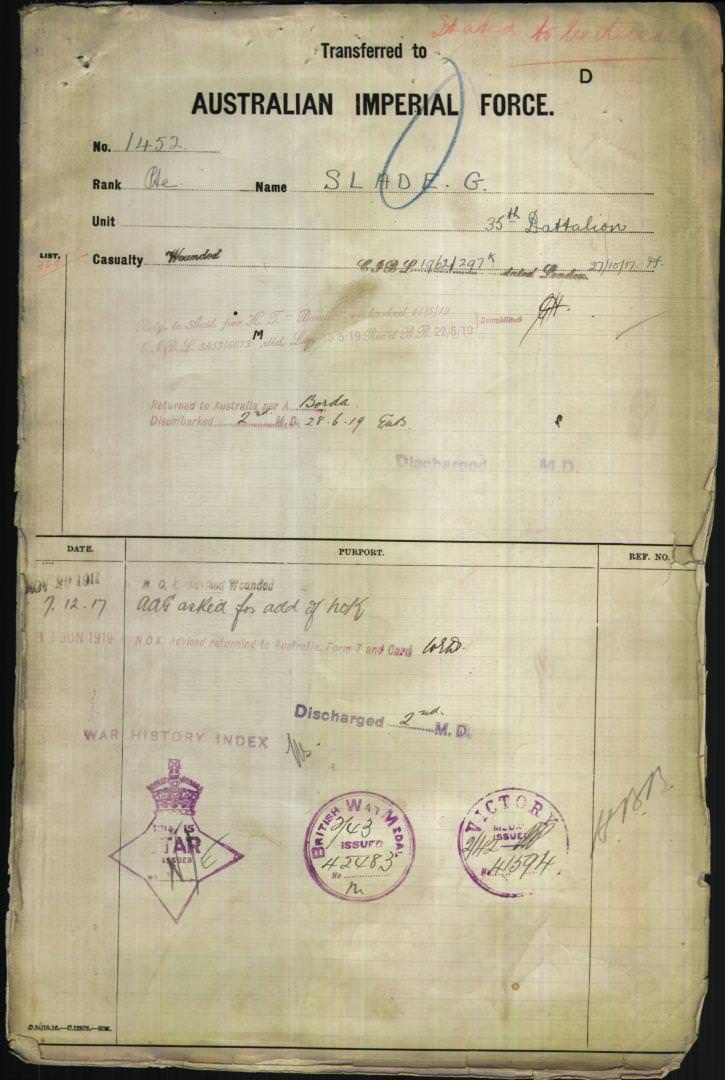 Transferred to
D
AUSTRALIAN IMPERIAL FORCE.
No. 1452
Rank Pte Name SLADE. G.
Unit 35th Battalion
LIST,
Casualty Wounded C.I.B.L. 1962/297K dated London 27/10/17.
M
Returned to Australia per A Borda
Disembarked 2nd M.D. 28-6-19
Discharged M.D.
DATE. PURPORT. REF. NO.
Wounded
7.12.17 AAG asked for add of NoK
JUN 1919 N.O.K. Advised returning to Australia, Form 7 and Card
Discharged 2nd M.D.
WAR HISTORY INDEX
STAR
ISSUED
N/E
BRITISH WAR MEDAL
2/43
ISSUED
42483
No
VICTORY
MEDAL
ISSUED
2/42
No 41594.
HBB